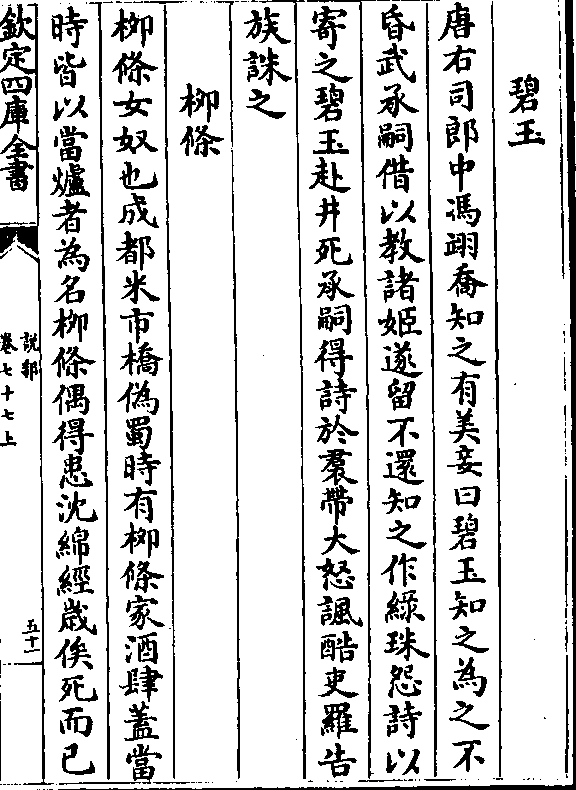 碧玉
唐右司郎中馮翊喬知之有美妾曰碧玉知之為之不
昏武承嗣借以教諸姬遂留不還知之作綠珠怨詩以
寄之碧玉赴井死承嗣得詩於裠帶大怒諷酷吏羅告
族誅之
柳條
柳條女奴也成都米市橋偽蜀時有柳條家酒肆蓋當
時皆以當爐者為名柳條偶得患沈綿經歳俟死而已
欽定四庫全書
說郛
卷七十七上
五十一